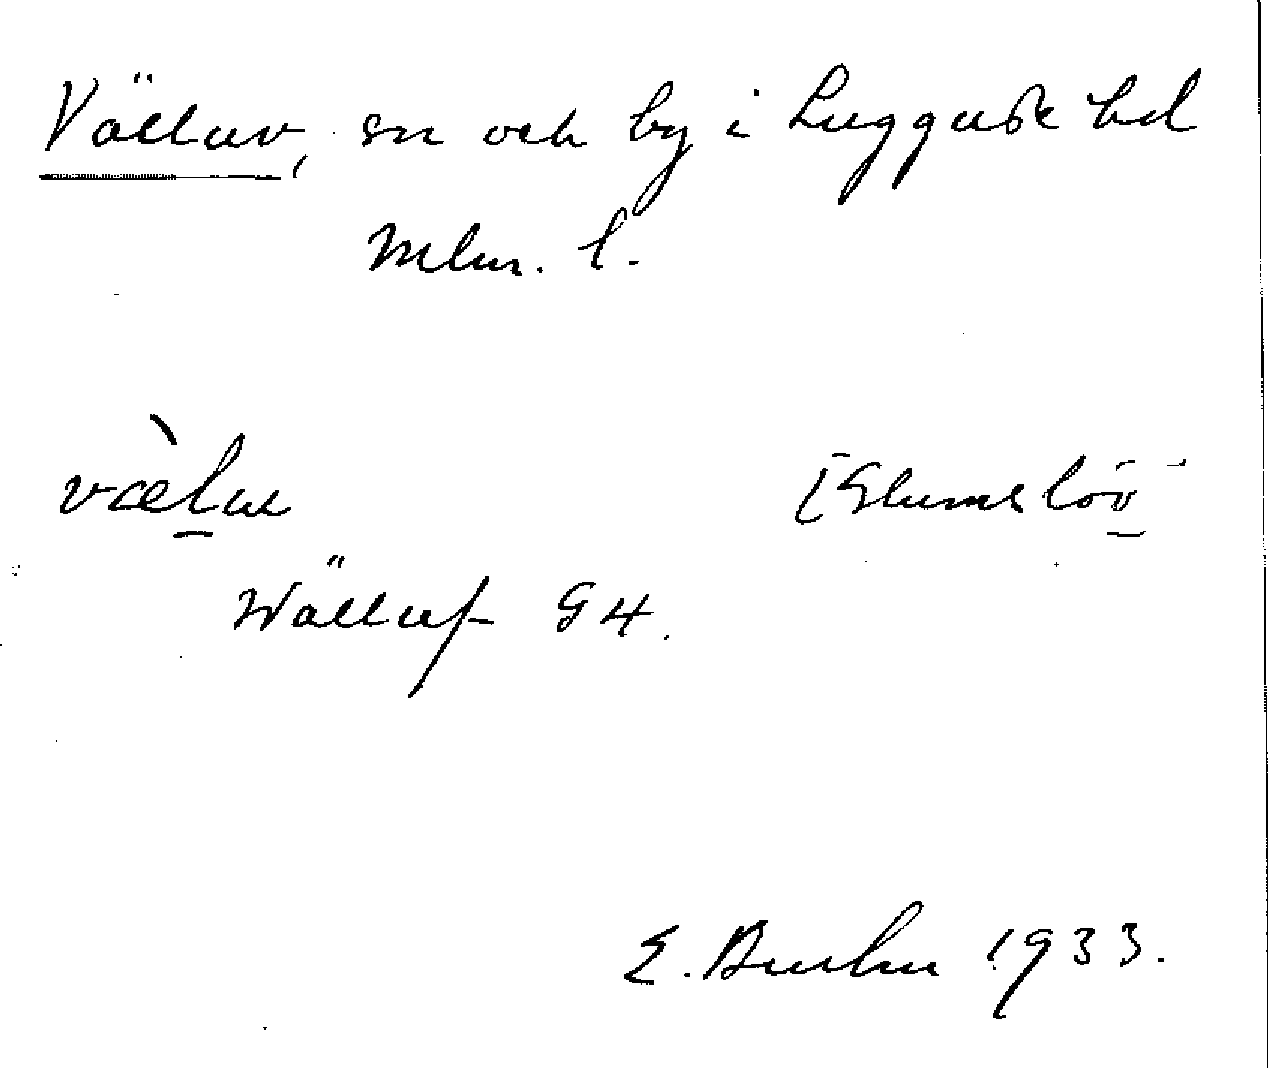 Välluv, sn och by i Luggude hd
Mlm. l.
vælu [Glumslöv]
Wälluf G4.
E. 1933.